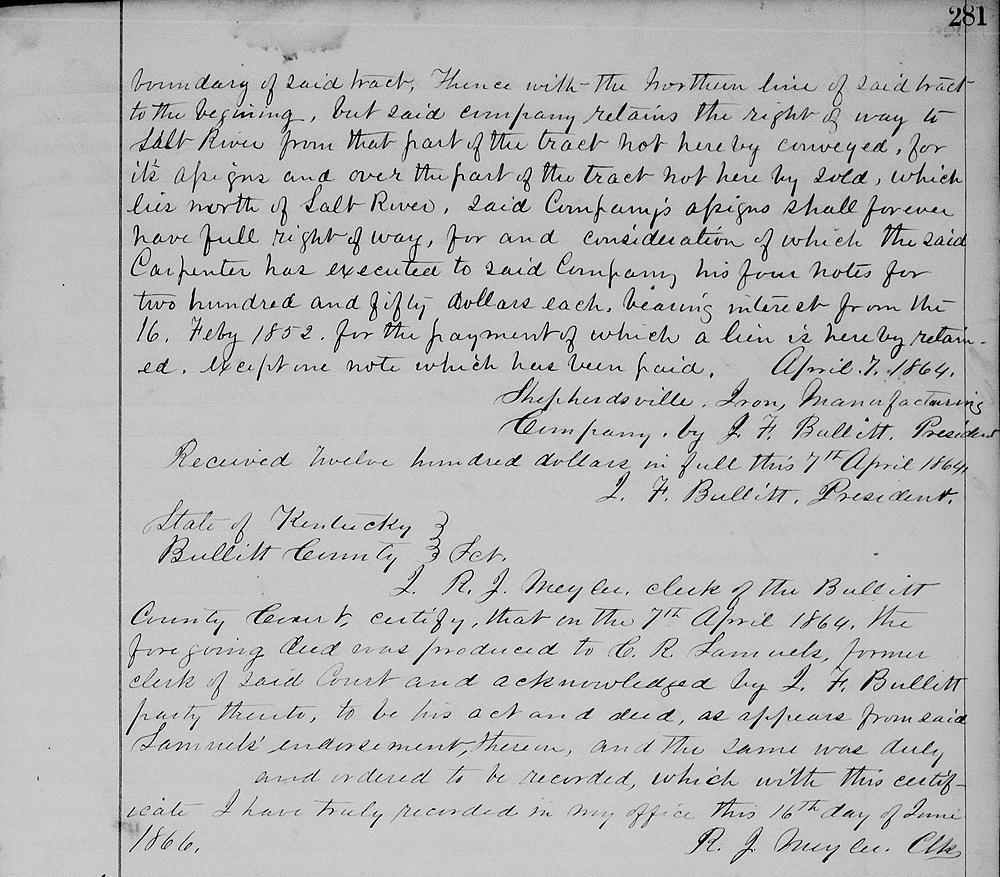 281
boundary of said tract, Thence with the Northern line of said tract
to the begining, but said company retains the right of way to
Salt River from that part of the tract not hereby conveyed, for
it's assigns and over the part of the tract not here by sold, which
lies north of Salt River, said Company's assigns shall forever
have full right of way, for and consideration of which the said
Carpenter has executed to said Company his four notes for
two hundred and fifty dollars each, bearing interest from the
16. Feby 1852. for the payment of which a lien is hereby retain-
ed. except one note which has been paid. April. 7. 1864.
Shepherdsville. Iron, Manurfacturing
Company. by J. F. Bullitt. President
Received Twelve hundred dollars in full this 7th April 1864,
J. F. Bullitt. President.
State of Kentucky }
Bullitt County } Sct.
I. R. J. Meyler. clerk of the Bullitt
County Court, certify, that on the 7th April 1864. the
foregoing deed was produced to C. R. Samuels, former
clerk of said Court and acknowledged by J. F. Bullitt
party thereto, to be his act and deed, as appears from said
Samuels' endorsement, thereon, and the same was duly
and ordered to be recorded, which with this certif-
icate I have truly recorded in my office this 16th day of June
1866. R. J. Meyler. Clk